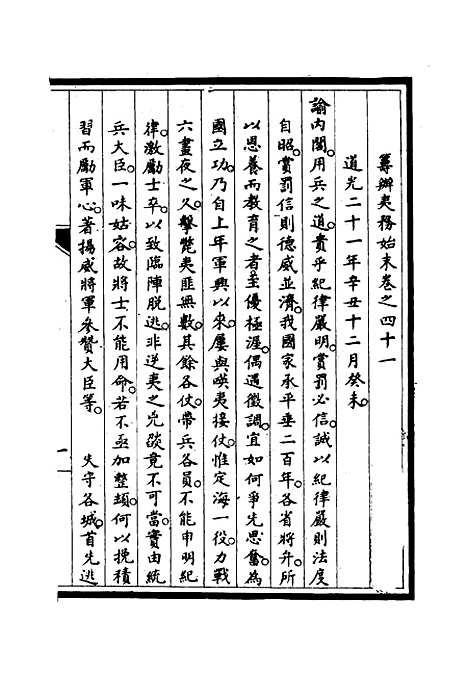 籌辦夷務始末卷之四十一
道光二十一年辛丑十二月癸未。
諭內閣。用兵之道。貴乎紀律嚴明。賞罰必信。誠以紀律嚴則法度
自昭。賞罰信則德威並濟。我國家承平垂二百年。各省將弁。所
以恩養而教育之者。至優極渥。偶遇徵調。宜如何爭先思奮。為
國立功。乃自上年軍興以來。屢與𠸄夷接仗。惟定海一役。力戰
六晝夜之久。擊斃夷匪無數。其餘各仗。帶兵各員。不能申明紀
律。激勵士卒。以致臨陣脫逃。非逆夷之兇燄竟不可當。實由統
兵大臣。一味姑容。故將士不能用命。若不亟加整頓。何以挽積
習而勵軍心。著揚威將軍參贊大臣等。 失守各城。首先逃